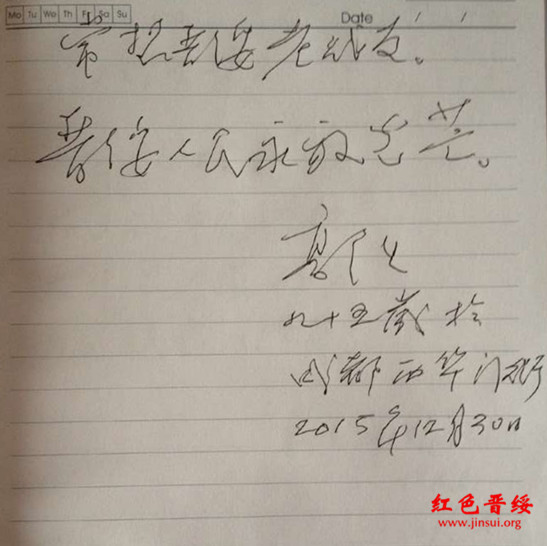 Mo Tu We Th Fr Sa Su
Date / /
常想晋绥老战友。
晋绥人民永放光芒。
九十五岁于
成都西华门街
2015年12月30日
红色晋绥
www.jinsui.org